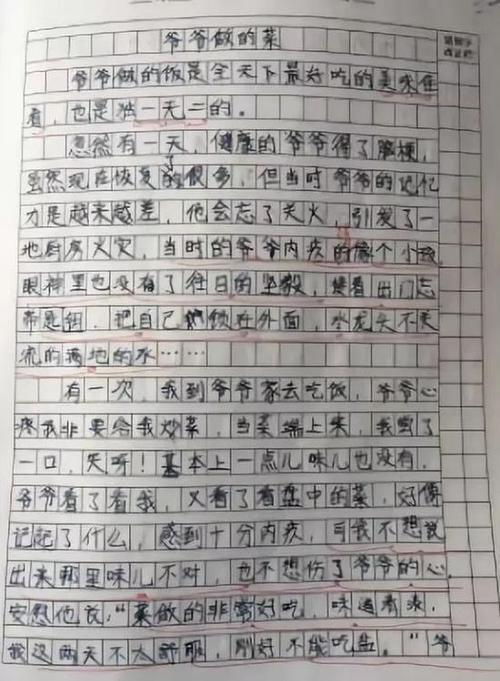 爷爷做的菜
爷爷做的饭是全天下最好吃的美味佳
肴，也是独一无二的。
忽然有一天，健康的爷爷得了脑梗，
虽然现在恢复了很多，但当时爷爷的记忆
力是越来越差，他会忘了关火，引发了一
场厨房火灾，当时的爷爷内疚的像个小孩
眼神里也没有了往日的坚毅，接着出门忘
带钥匙，把自己锁在外面，水龙头不关
流的满地的水……
有一次，我到爷爷家去吃饭，爷爷心
疼我非要给我炒菜，当菜端上来，我尝了
一口，天呀！基本上一点儿味儿也没有，
爷爷看了看我，又看了看盘中的菜，好像
记起了什么，感到十分内疚，可我不想说
出来那里味儿不对，也不想伤了爷爷的心，
安慰他说：“菜做的非常好吃，味道
我这两天不太舒服，刚好不能吃盐。”爷